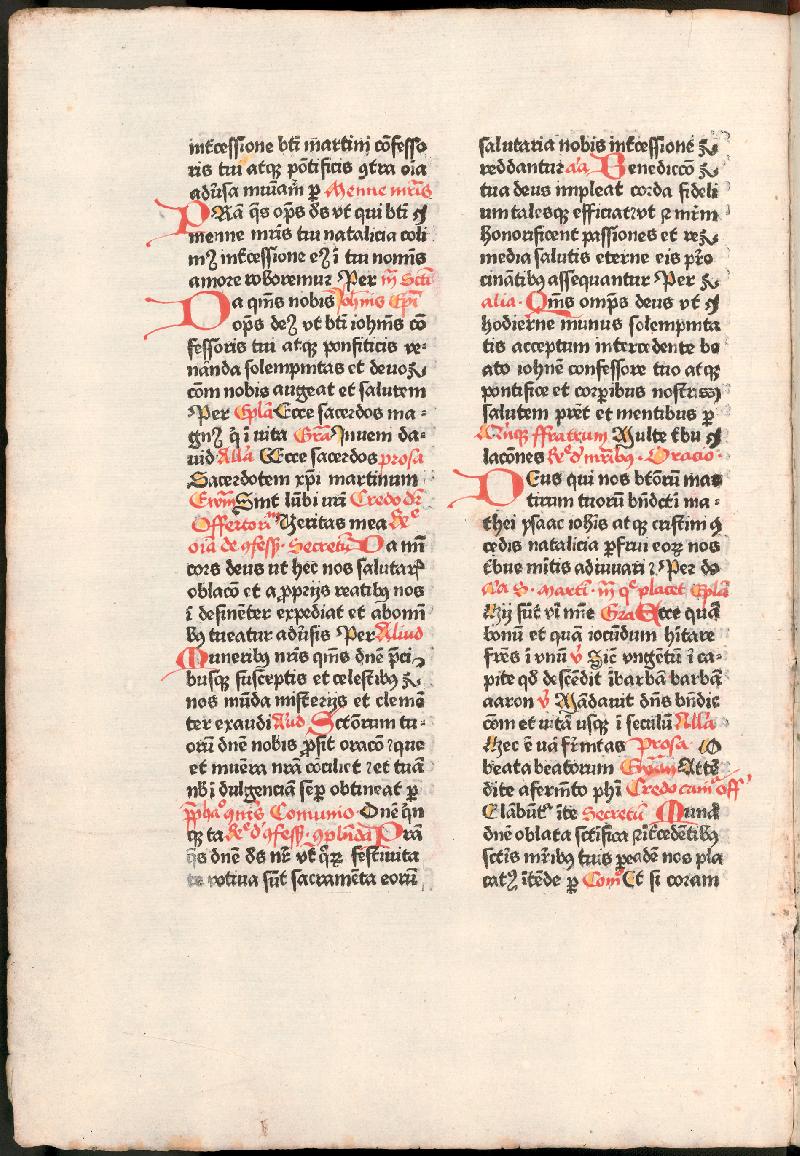 intcessione bti martini cōfesso
ris tui atqꝫ pōtificis ꝯtra oīa
adūsa muīam̄ ꝑ Menne mr̄is
PRā qs̄ oPs̄ ds̄ vt qui bti
menne mr̄is tui natalicia coli
mꝰ intcessione eiꝰ ī tui nomīs
amore roboremur Per m̄ Scti
Da qm̄s nobis Johīs Epī
oPs̄ deꝰ vt bti iohīs cō
fessoris tui atqꝫ pontificis ve-
nāda solempnitas et deuoꝫ
cōm nobis augeat et salutem
Per Epl̄a Ecce sacerdos ma-
gnꝰ q̄ ī uita Gra Inuem da-
uid All̄a Ecce sacerdos prosa
Sacerdotem xp̄i martinum
Ewm̄ Sint lūbi urī Credo dr̄
Offertoriū Veritas mea
oīa de ꝯfess. Secretū Da mi
cors deus ut hec nos salutaris
oblacō et a ꝓprijs reatibꝰ nos
ī desinēter expediat et ab omī
bꝰ tueatur adūsis Per Aliud
Muneribꝰ nr̄is qm̄s dnē pci
busqꝫ susceptis et celestibꝰ
nos mūda misterijs et clemē
ter exaudi Aliud Sctōrum tu-
orū dnē nobis ꝓsit oracō ꝛ que
et muēra nr̄a cōciliet ꝛ et tuā
nbī dulgenciā semꝑ obtineat ꝑ
Comunio Dnē qn̄
qꝫ ta Prā
qs̄ dnē ds̄ nr̄ vt q̄ꝝ festiuita
te votiua sūt sacramēta eorū
salutaria nobis intcessione
reddantur alia Benedicco
tua deus impleat corda fideli
um talesqꝫ efficiat vt ꝛ mr̄m
honorificent passiones et re
media salutis eterne eis pro
cinātibꝰ assequantur Per
alia Qm̄s omps̄ deus vt
hodierne munus solempnita
tis acceptum intercedente be
ato iohn̄e confessore tuo atqꝫ
pontifice et corporibus nostris
salutem pr̄et et mentibus ꝑ
Quinqꝫ ffratrum Multe tbu
lacōnes Oracio
Deus qui nos btōrum mar
tirum tuorū bn̄dcti ma-
thei ysaac iohīs atqꝫ cristini
cedis natalicia ꝑfrui eoꝝ nos
tbue mitis adiuuari ꝛ Per do
S. marti Epl̄a
Hij sūt vī mīe Gra Ecce quā
bonū et quā iocūdum hītare
fr̄es ī vnū v̄ Sic vngētū ī ca-
pite qd̄ descēdit ī barbā barbā
aaron v̄ Mādauit dn̄s bn̄dic
cōm et uitā usqꝫ ī seculū All̄a
Hec ē uā fr̄nitas Prosa O
beata beatorum Ewm̄ Attē
dite a ferm̄to phī Credo off
Elābūt iīte Secretū Munā
dnē oblata sctīfica ꝛ ītcedētibꝰ
sctīs mr̄ibꝰ tuis ꝑ eadē nos pla
catꝰ ītēde ꝑ Com̄o Et si coram